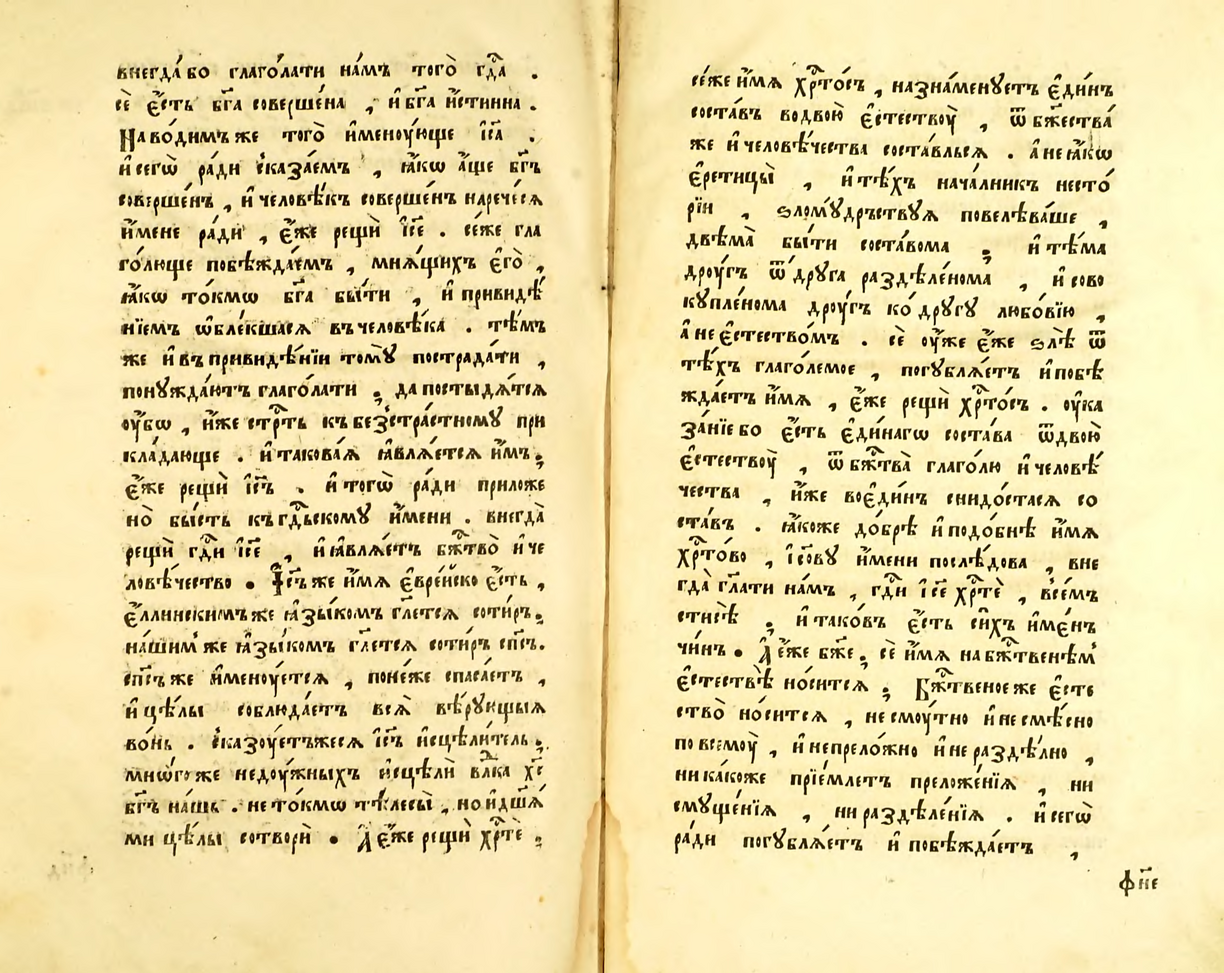 внегда́ бо глаго́лати на́мъ того̀ гдⷭ҇а .
сѐ є҆́сть бг҃а соверше́на , и҆ бг҃а и҆́стинна .
На́водимъ же того̀ и҆менꙋ́юще і҆са .
и҆ сегѡ̀ ра́ди ска́заемъ , ꙗ҆́кѡ а҆́ще бг҃ъ
соверше́нъ , и҆ человѣ́къ соверше́нъ нарече́сѧ
и҆́мене ра́ди , є҆́же рещѝ і҆с҃е . се́же гла
го́люще побѣжда́емъ , мнѧ́щихъ є҆го̀ ,
ꙗ҆́кѡ то́кмѡ бг҃а бы́ти , и҆ привидѣ́
нїемъ ѡ҆бле́кшасѧ въ человѣ́ка . тѣ́мъ
же и҆ въ привидѣ́нїи томꙋ̀ пострада́ти ,
понꙋжда́ютъ глаго́лати ; да постыдѧ́тсѧ
ᲂу҆́бѡ , и҆́же стрⷭ҇ть къ безстра́стномꙋ при
кла́дающе . и҆ такова́ѧ ꙗ҆влѧ́етсѧ и҆́мъ ;
є҆́же рещѝ і҆с҃ъ . и҆ тогѡ̀ ра́ди приложе
но̀ бы́сть къ гдⷭ҇ьскомꙋ и҆́мени . внегда̀
рещѝ гдⷭ҇и і҆с҃е , и҆ ꙗ҆влѧ́етъ бжⷭ҇тво̀ и҆ че
ловѣ́чество . І҆с҃ъ же и҆́мѧ є҆вре́йско є҆́сть ,
є҆́ллинскимъ же ꙗ҆зы́комъ гл҃етсѧ соти́ръ ;
на́шимъ же ꙗ҆зы́комъ гл҃етсѧ соти́ръ сп҃съ .
сп҃съ же и҆менꙋ́етсѧ , поне́же спаса́етъ ,
и҆ цѣ́лы соблюда́етъ всѧ̀ вѣ́рꙋющыѧ
во́нь . ска́зꙋетъжесѧ і҆с҃ъ и҆сцѣли́тель ;
мнѡ́го же недꙋ́жныхъ и҆сцѣлѝ влⷣка хⷭ҇е
бг҃ъ на́шь . не то́кмѡ тѣлесы̀ , но и҆ дш҃а́
ми цѣ́лы сотворѝ . А҆ є҆́же рещѝ хрⷭ҇тѐ ;
се́же и҆́мѧ хрⷭ҇то́съ , назна́менꙋетъ є҆ди́нъ
соста́въ во двою̀ є҆стествꙋ̀ , ѿ бж҃ества̀
же и҆ человѣ́чества соста́вльсѧ . а҆ не ꙗ҆́кѡ
є҆ретицы̀ , и҆ тѣ́хъ нача́лникъ несто́
рїи , ѕломꙋ́дръствꙋѧ повелѣва́ше ,
двѣма̀ бы́ти соста́вома ; и҆ тѣ́ма
дрꙋ́гъ ѿ дрꙋ́га раздѣле́нома , и҆ сово
кꙋпле́нома дрꙋ́гъ ко́ дрꙋгꙋ любо́вїю ,
а҆ не є҆стество́мъ . сѐ ᲂу҆́же є҆́же ѕлѣ̀ ѿ
тѣ́хъ глаго́лемое , погꙋблѧ́етъ и҆ побѣ
жда́етъ и҆́мѧ , є҆́же рещѝ хрⷭ҇то́съ . ᲂу҆ка
за́нїе бо є҆́сть є҆ди́нагѡ соста́ва ѿ двою̀
є҆стествꙋ̀ , ѿ бжⷭ҇тва̀ глаго́лю и҆ человѣ́
чества , и҆́же во є҆ди́нъ снидо́стасѧ со
ста́въ . ꙗ҆́коже до́брѣ и҆ подо́бнѣ и҆́мѧ
хрⷭ҇то́во , і҆с҃овꙋ и҆́мени послѣ́дова , вне
гда̀ гл҃ати на́мъ , гдⷭ҇и і҆с҃е хрⷭ҇тѐ , все́мъ
стисѣ̀ ; и҆ тако́въ є҆́сть си́хъ и҆ме́нъ
чи́нъ . А҆ є҆́же бж҃е ; сѐ и҆́мѧ на бжⷭ҇твенѣмъ
є҆стествѣ̀ но́ситсѧ ; Бжⷭ҇твеное же є҆сте
ство̀ но́ситсѧ , не смꙋ́тно и҆ не смѣ́сно
по всемꙋ̀ , и҆ непрело́жно и҆ не раздѣ́лно ,
ни ка́коже прїе́млетъ преложе́нїѧ , ни
смꙋще́нїѧ , ни раздѣле́нїѧ . и҆ сегѡ̀
ра́ди погꙋблѧ́етъ и҆ побѣжда́етъ ,
фн҃е